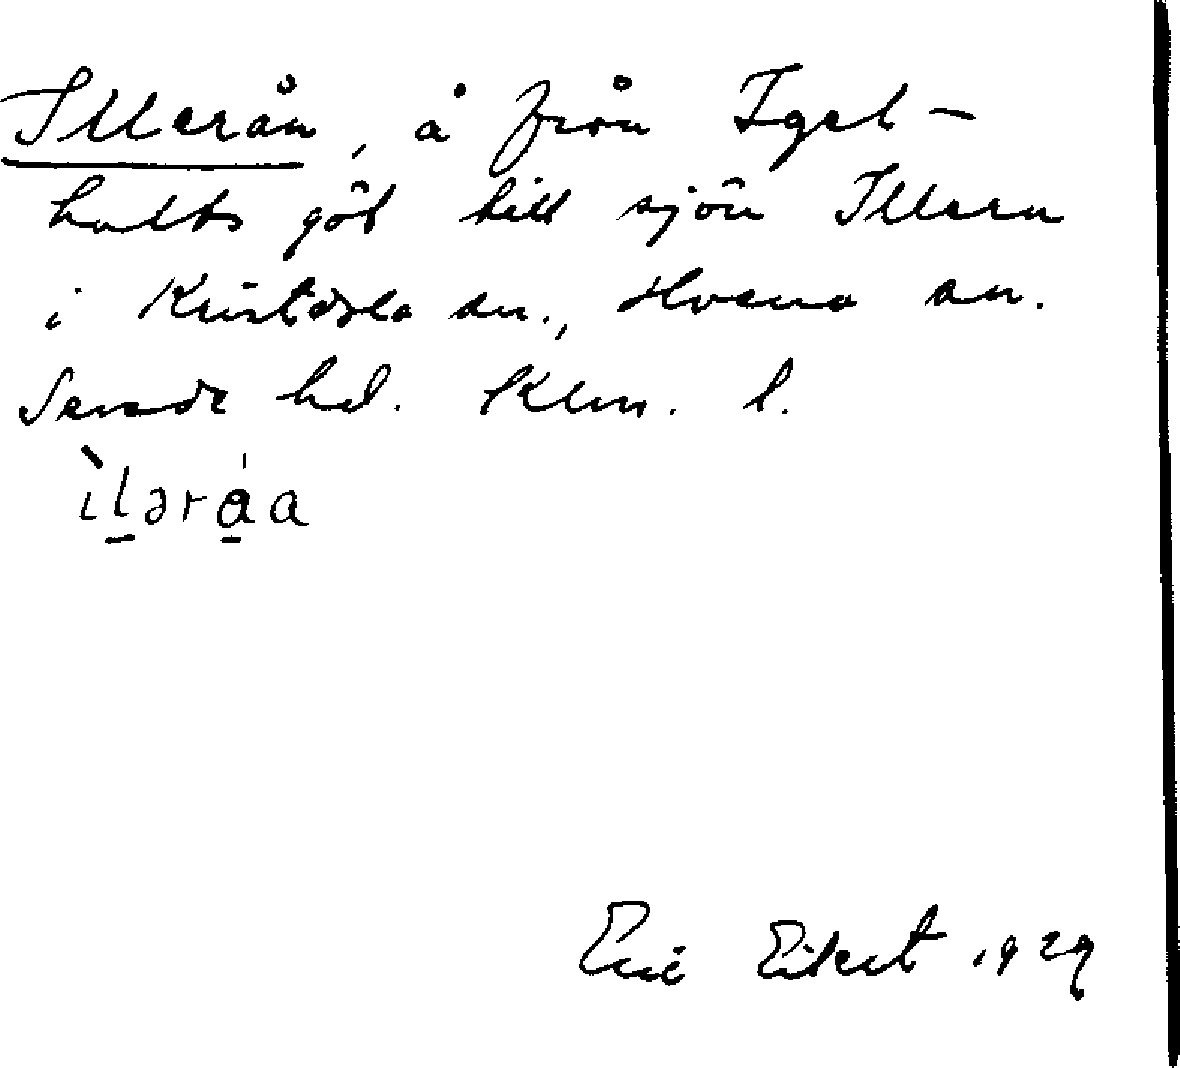 Illerån, å från Igel-
hults göl till sjön Illern
i Kristdala sn., Hvena sn.
Sevede hd. Klm. l.
ìl̠əra̠̍a
Eric Eckert 1929